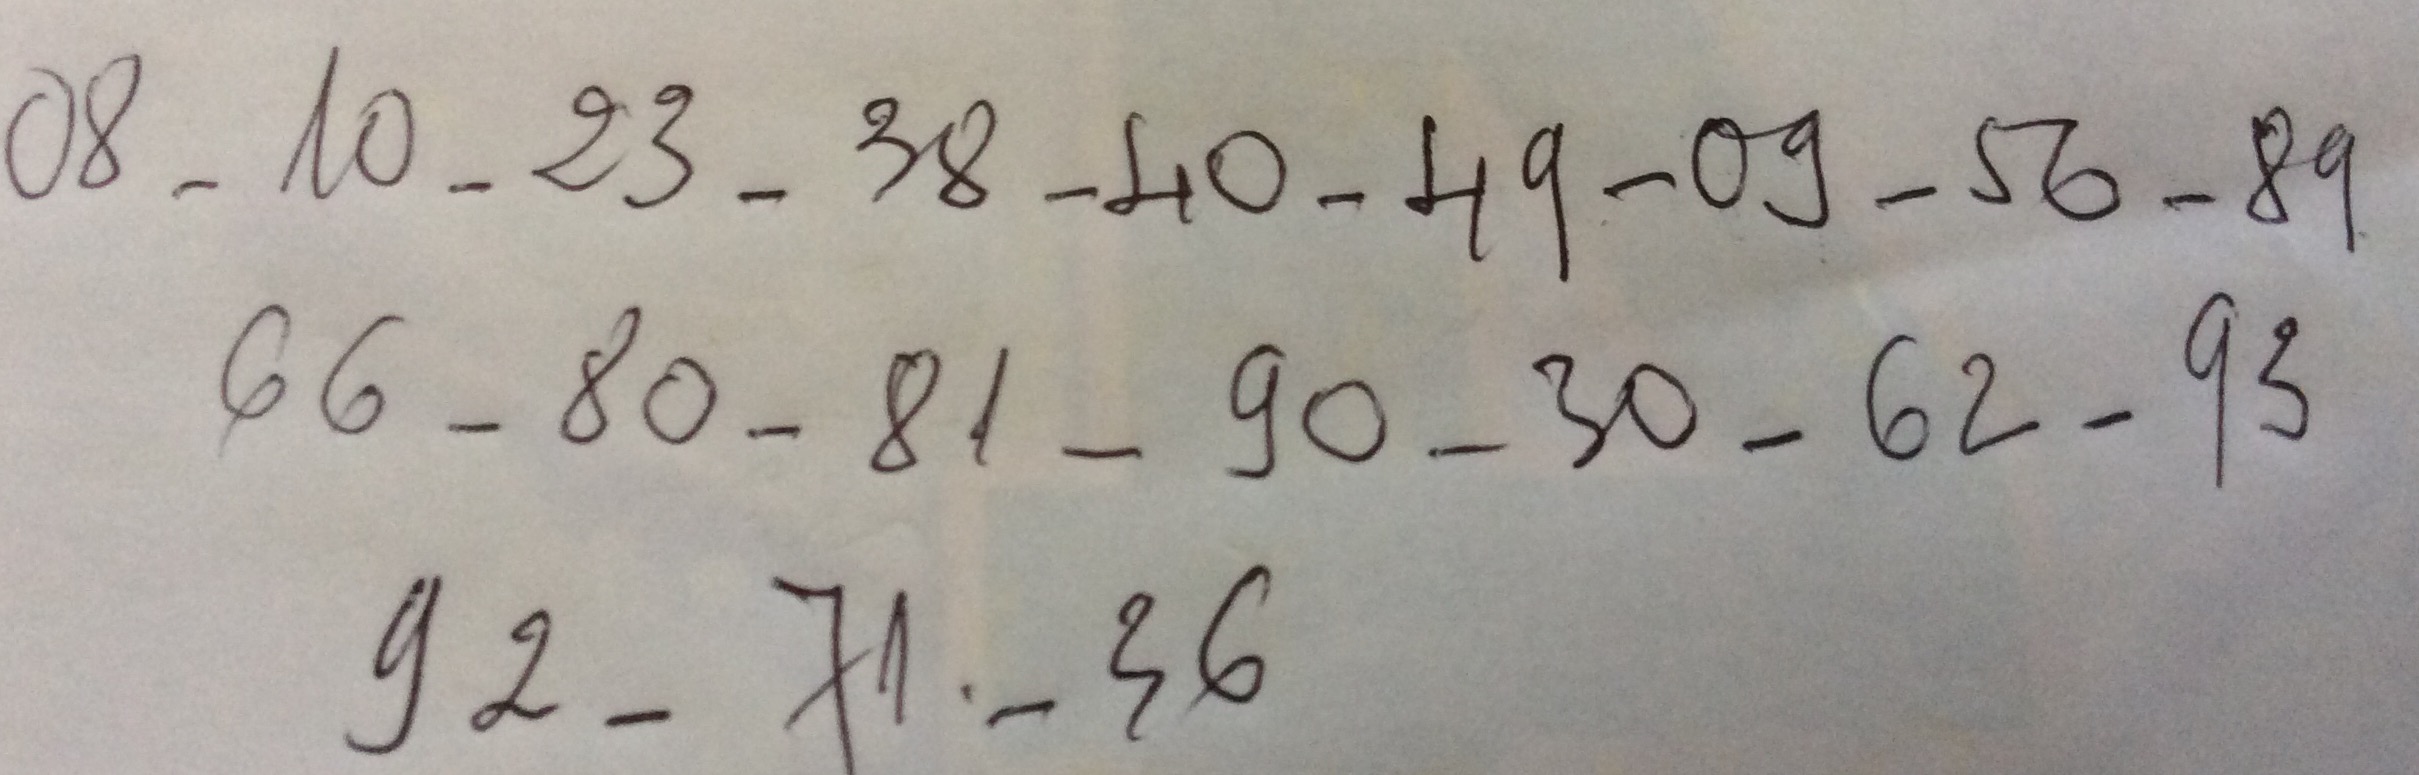 08 - 10 - 23 - 38 - 40 - 49 - 09 - 56 - 89
66 - 80 - 81 - 90 - 30 - 62 - 93
92 - 71. - 36